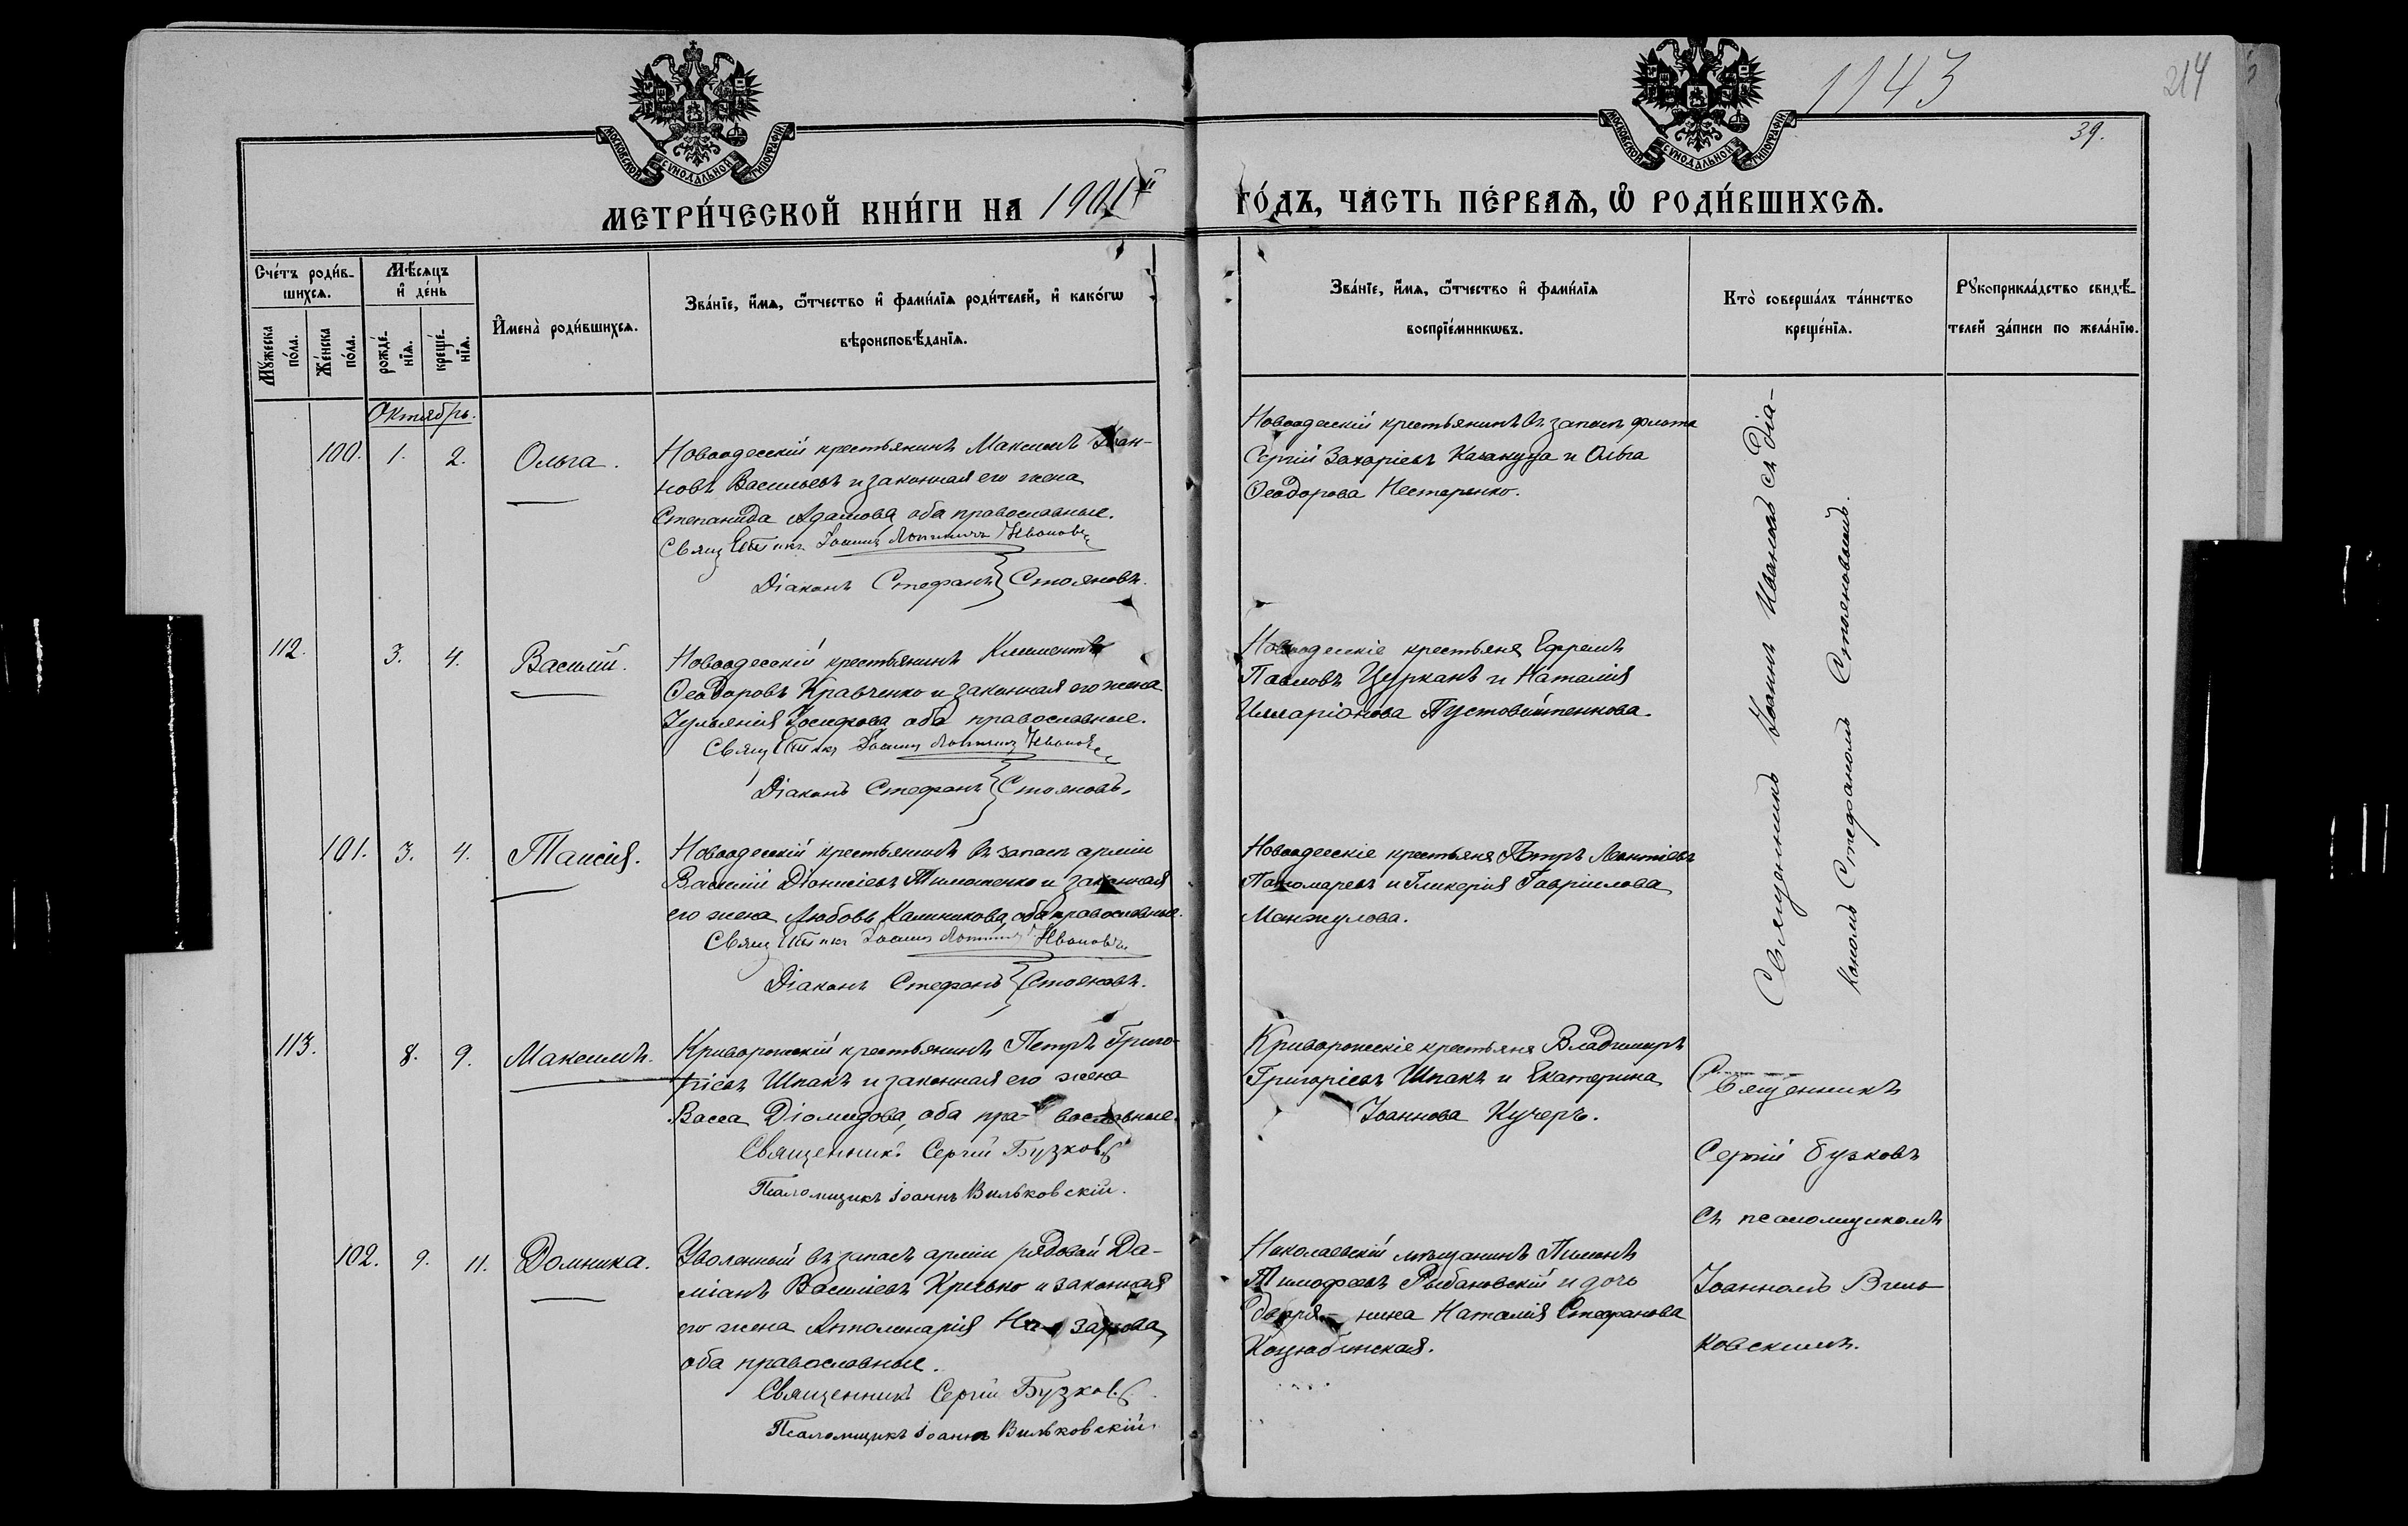 1143
214
39.
МОСКОВСКОЙ СѴНОДАЛЬНОЙ ТИПОГРАФІИ
МОСКОВСКОЙ СѴНОДАЛЬНОЙ ТИПОГРАФІИ
МЕТРИ́ЧЕСКОЙ КНИ́ГИ НА 1901й ГО́ДЪ, ЧА́СТЬ ПЕ́РВАѦ, Ѿ РОДИ́ВШИХСѦ.
Сче́тъ роди́в-
шихсѧ.
Мꙋ́жеска по́ла.
Же́нска по́ла.
Мѣ́сяцъ
и҆ де́нь
рожде́-
нїѧ.
креще́-
нїѧ.
И҆мена̀ роди́вшихсѧ.
Зва́нїе, и҆́мѧ, ѻ҆́тчество и҆ фами́лїѧ роди́телей, и҆ како́гѡ
вѣроисповѣ́данїѧ.
Зва́нїе, и҆́мѧ, ѻ҆́тчество и҆ фами́лїѧ
воспрїе́мникѡвъ.
Кто̀ соверша́лъ та́инство
креще́нїѧ.
Рꙋкоприкла́дство свидѣ́-
телей за́писи по жела́нїю.
Октябрь.
100. 1. 2. Ольга.
Новоодесскій крестьянинъ Максимъ Іоан-
новъ Васильевъ и законная его жена
Степанида Адамова, оба православные.
Іоаннъ Ивановъ
Діаконъ Стефанъ Стояновъ.
Новоодесскій крестьянинъ въ запасѣ флота
Сергій Захаріевъ Казакуца и Ольга
Ѳеодорова Нестеренко.
Священникъ Іоаннъ Ивановъ съ діа-
кономъ Стефаномъ Стояновымъ.
112. 3. 4. Василій.
Новоодесскій крестьянинъ Климентъ
Ѳеодоровъ Кравченко и законная его жена
Іуліанія Іосифова, оба православные.
Іоаннъ Ивановъ
Діаконъ Стефанъ Стояновъ.
Новоодесскіе крестьяне Ефремъ
Павловъ Цурканъ и Наталія
Илларіонова Пустовойтенкова.
101. 3. 4. Таисія.
Новоодесскій крестьянинъ въ запасѣ арміи
Василій Діонисіевъ Тимошенко и законная
его жена Любовь Калиникова, оба православные.
Іоаннъ Ивановъ
Діаконъ Стефанъ Стояновъ.
Новоодесскіе крестьяне Петръ Леонтіевъ
Пономаревъ и Гликерія Гавріилова
Манжулова.
113. 8. 9. Максимъ.
Криворожскій крестьянинъ Петръ Григо-
ріевъ Шпакъ и законная его жена
Васса Діомидова, оба пра- вославные.
Священникъ Сергій Бузковъ
Псаломщикъ Іоаннъ Вильковскій.
Криворожскіе крестьяне Владимиръ
Григоріевъ Шпакъ и Екатерина
Іоаннова Кучеръ.
Священникъ
Сергій Бузковъ
съ псаломщикомъ
Іоанномъ Виль-
ковскимъ.
102. 9. 11. Домника.
Уволенный въ запасъ арміи рядовой Да-
міанъ Василіевъ Крисько и законная
его жена Апполинарія На- зарова,
оба православные.
Священникъ Сергій Бузковъ
Псаломщикъ Іоаннъ Вильковскій.
Николаевскій мѣщанинъ Пименъ
Тимофеевъ Рыбановскій и дочь
дворя- нина Наталія Стефанова
Коцюбинская.